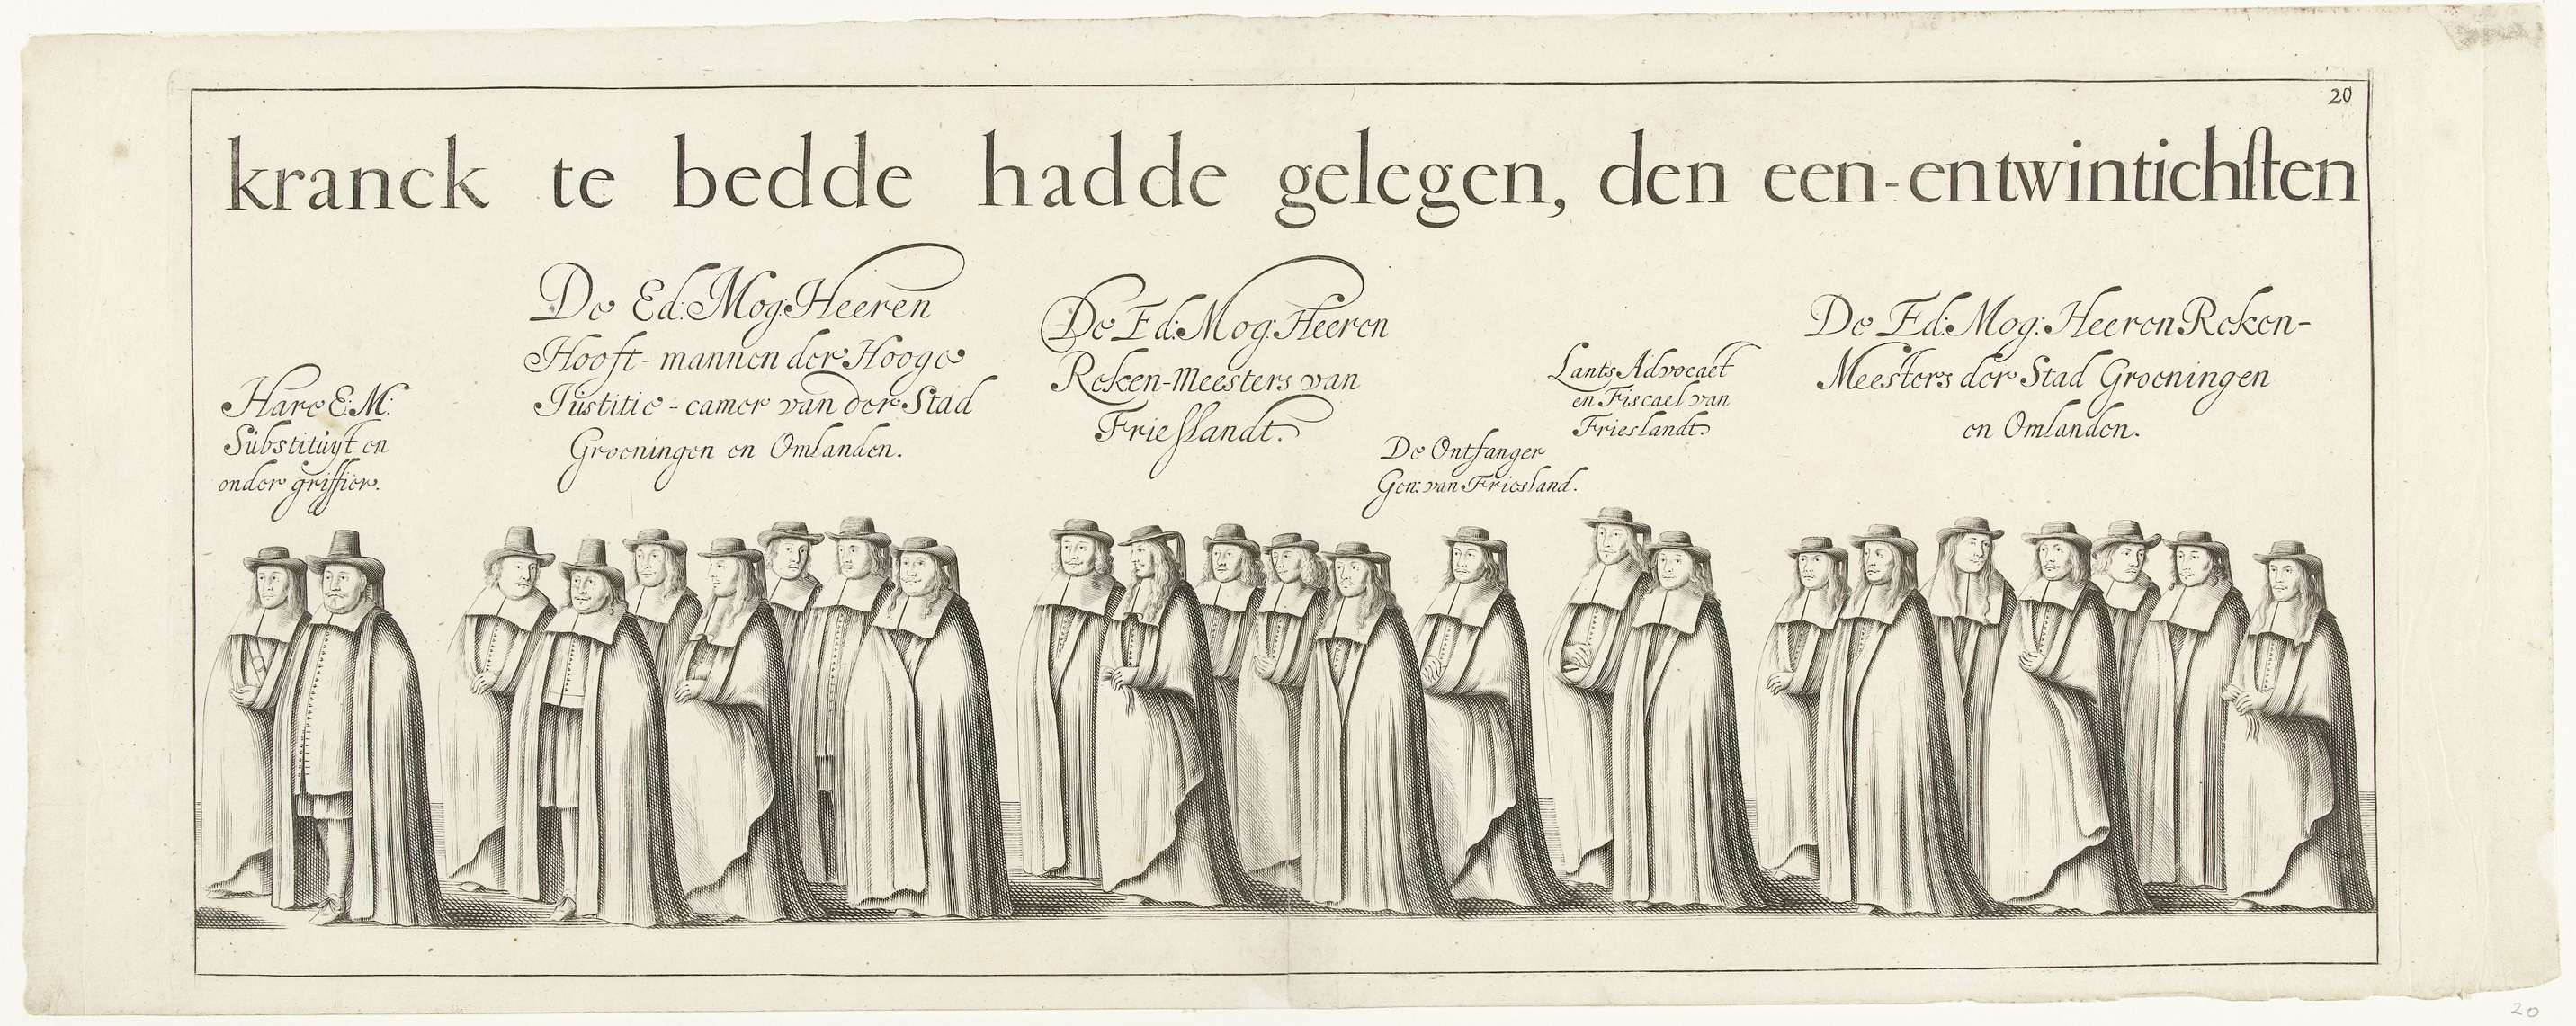 20
kranck te bedde hadde gelegen, den een-entwintichsten
Hare E: M:
Substituyt en
onder griffier.
De Ed: Mog: Heeren
Hooft-mannen der Hooge
Iustitie-camer van der Stad
Groeningen en Omlanden.
De Ed: Mog: Heeren
Reken-Meesters van
Frieslandt.
De Ontfanger
Gen: van Friesland.
Lants Advocaet
en Fiscael van
Frieslandt.
De Ed: Mog: Heeren Reken-
Meesters der Stad Groeningen
en Omlanden.
20